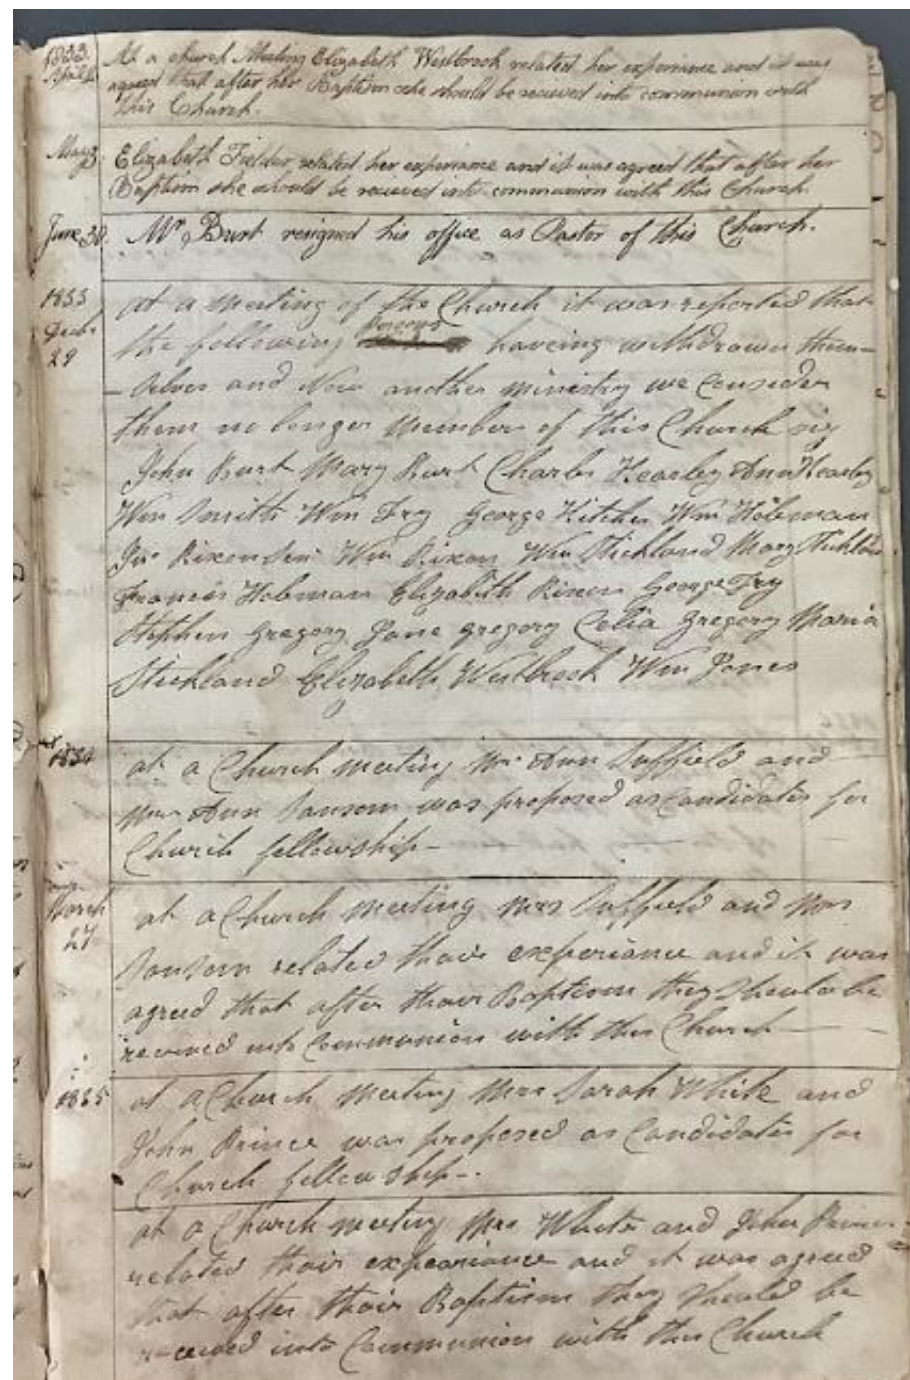 1833 April At a church Meeting Elizabeth Westbrook related her experience and it was
agreed that after her Baptism she should be received into communion with
this Church.
May 3. Elizabeth Fielder related her experiance and it was agreed that after her
Baptism she should be received into communion with this Church.
June 30. Mr Burt resigned his office as Pastor of this Church.
1833 at a meeting of the Church it was reported that
Decbr 29 the following persons haveing withdrawn them-
-selves and Now another ministry we consider
them no longer members of this Church viz
John Burt Mary Burt Charles Hearley Ann Hearley
Wm Smith Wm Fry George Kitcher Wm Holeman
Jno Rixon Senr Wm Rixon Wm Stickland Mary Stickland
Francis Holeman Elizabeth Rixon George Fry
Stephen Gregory Jane Gregory Celia Gregory Maria
Stickland Elizabeth Westbrook Wm Jones
1834 at a Church meeting Mrs Ann Suffield and
Mrs Ann Sansom was proposed as Candidates for
Church fellowship-
March at a Church meeting Mrs Suffield and Mrs
27 Sansom related thair experiance and it was
agreed that after thair Baptism they should be
received into Communion with this Church
1835 at a Church meeting Mrs Sarah White and
John Prince was proposed as Candidates for
Church fellowship-.
at a Church meeting Mrs White and John Prince
related thair expeariance and it was agreed
that after thair Baptism they should be
received into Communion with this Church